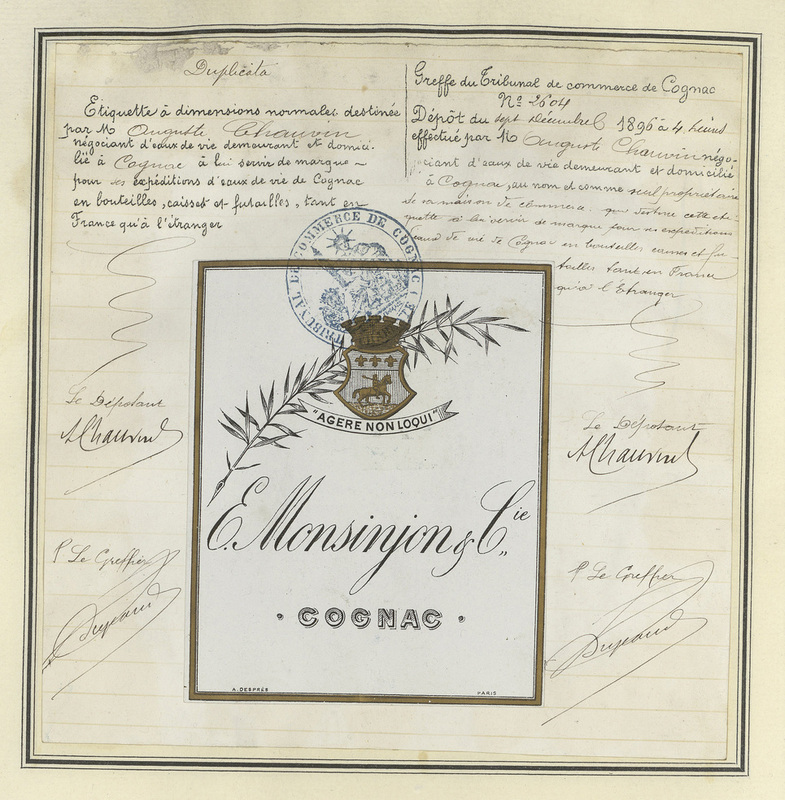 Duplicata
Etiquette à dimensions normales destinée
par Mr Auguste Chauvin
négociant d'eaux de vie demeurant et domici-
lié à Cognac à lui servir de marque
pour ses expéditions d'eaux de vie de Cognac
en bouteilles, caisses et futailles, tant en
France qu'à l'étranger
Le Déposant
AChauvin
Pr Le Greffier
Greffe du Tribunal de commerce de Cognac
No 2604
Dépôt du sept Décembre 1896 à 4 heures
effectué par Mr Auguste Chauvin négo-
ciant d'eaux de vie demeurant et domicilié
à Cognac, au nom et comme seul propriétaire
de sa maison de commerce qui destine cette éti-
quette à lui servir de marque pour ses expéditions
d'eaux de vie de Cognac en bouteilles caisses et fu-
tailles tant en France
qu'à l'Etranger
Le Déposant
AChauvin
Pr Le Greffier
TRIBUNAL DE COMMERCE DE COGNAC
"AGERE NON LOQUI"
E. Monsinjon & Cie
COGNAC
A. DESPRÉS
PARIS